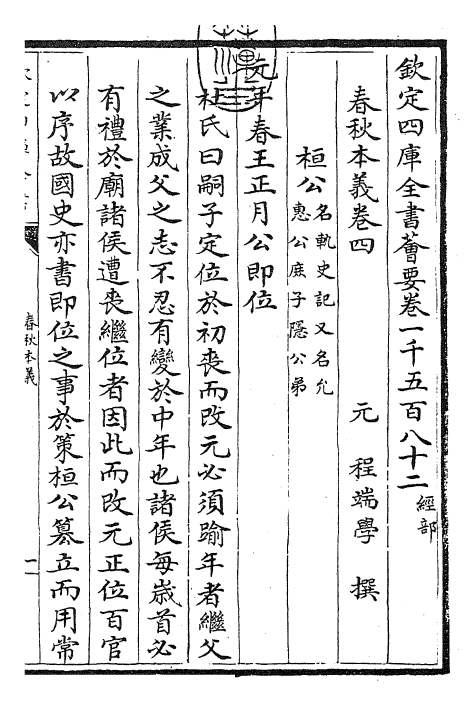 欽定四庫全書薈要卷一千五百八十二 經部
春秋本義卷四 元 程端學 撰
桓公 名軌史記又名允惠公庶子隠公弟
元年春王正月公即位
杜氏曰嗣子定位於初喪而改元必須踰年者繼父
之業成父之志不忍有變於中年也諸侯每歳首必
有禮於廟諸侯遭喪繼位者因此而改元正位百官
以序故國史亦書即位之事於策桓公簒立而用常
春秋本義
一